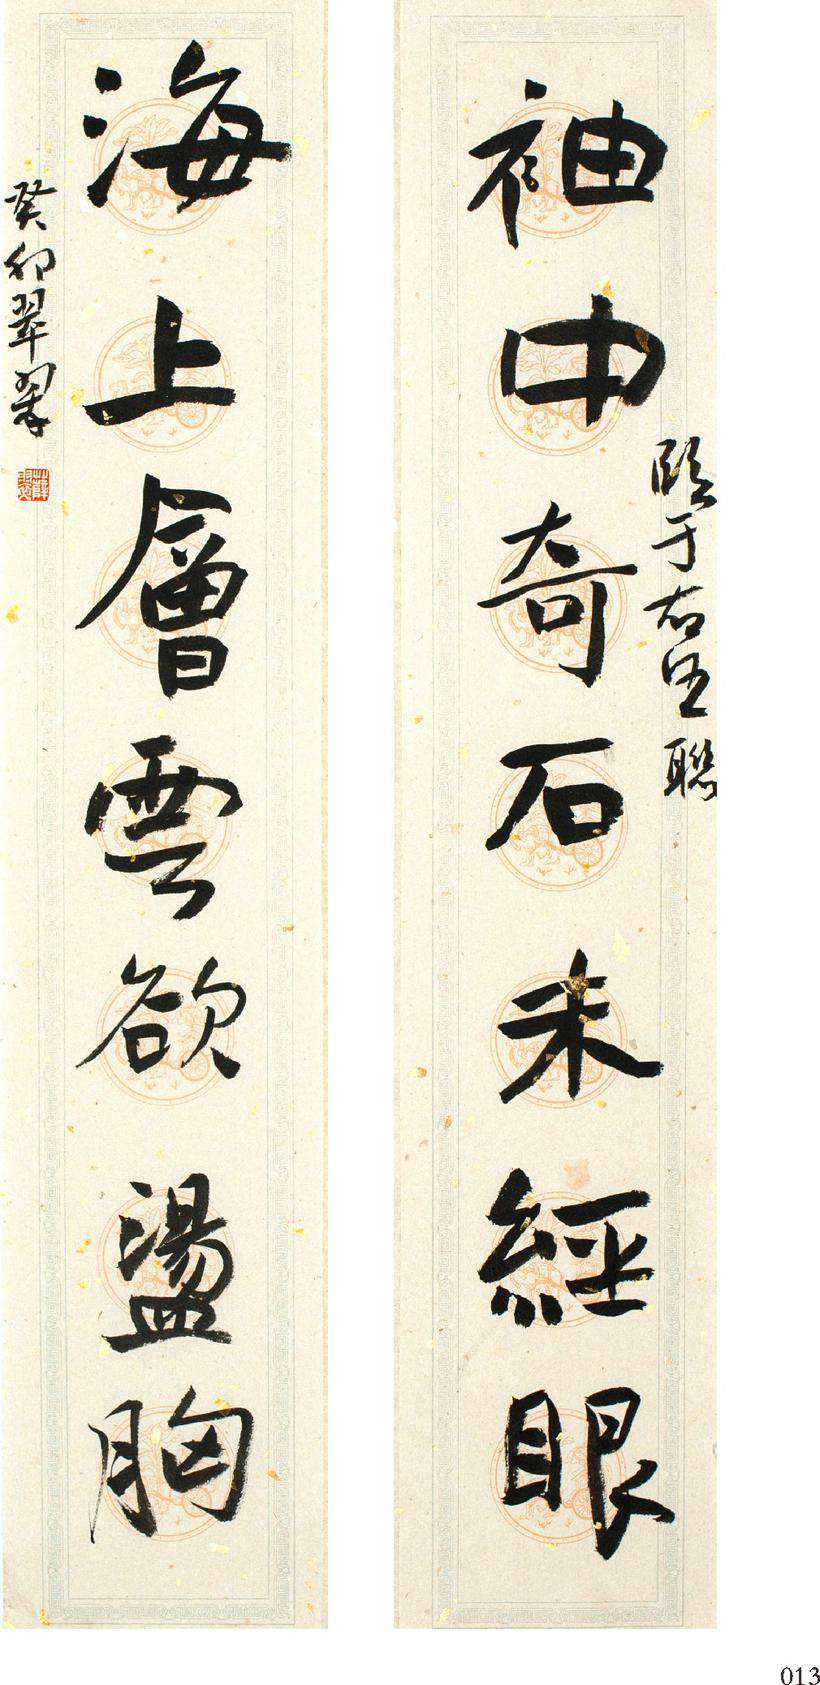 袖中奇石未經眼
臨于右任聯
海上層雲欲盪胸
癸卯翠翠
013